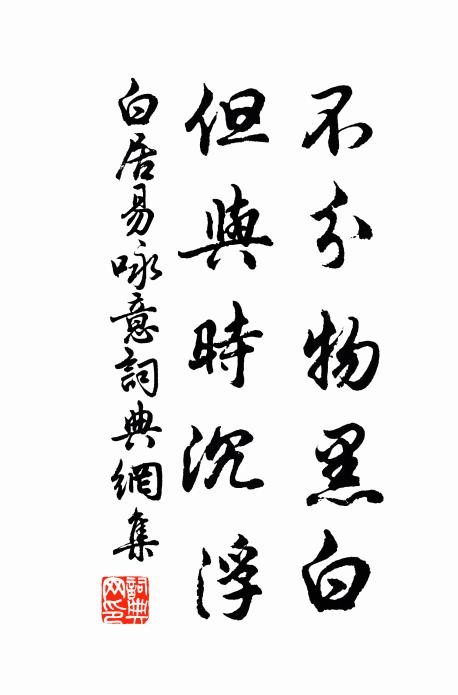 不分物黑白
但與時沉浮
白居易咏意詞典網集
詞典網印